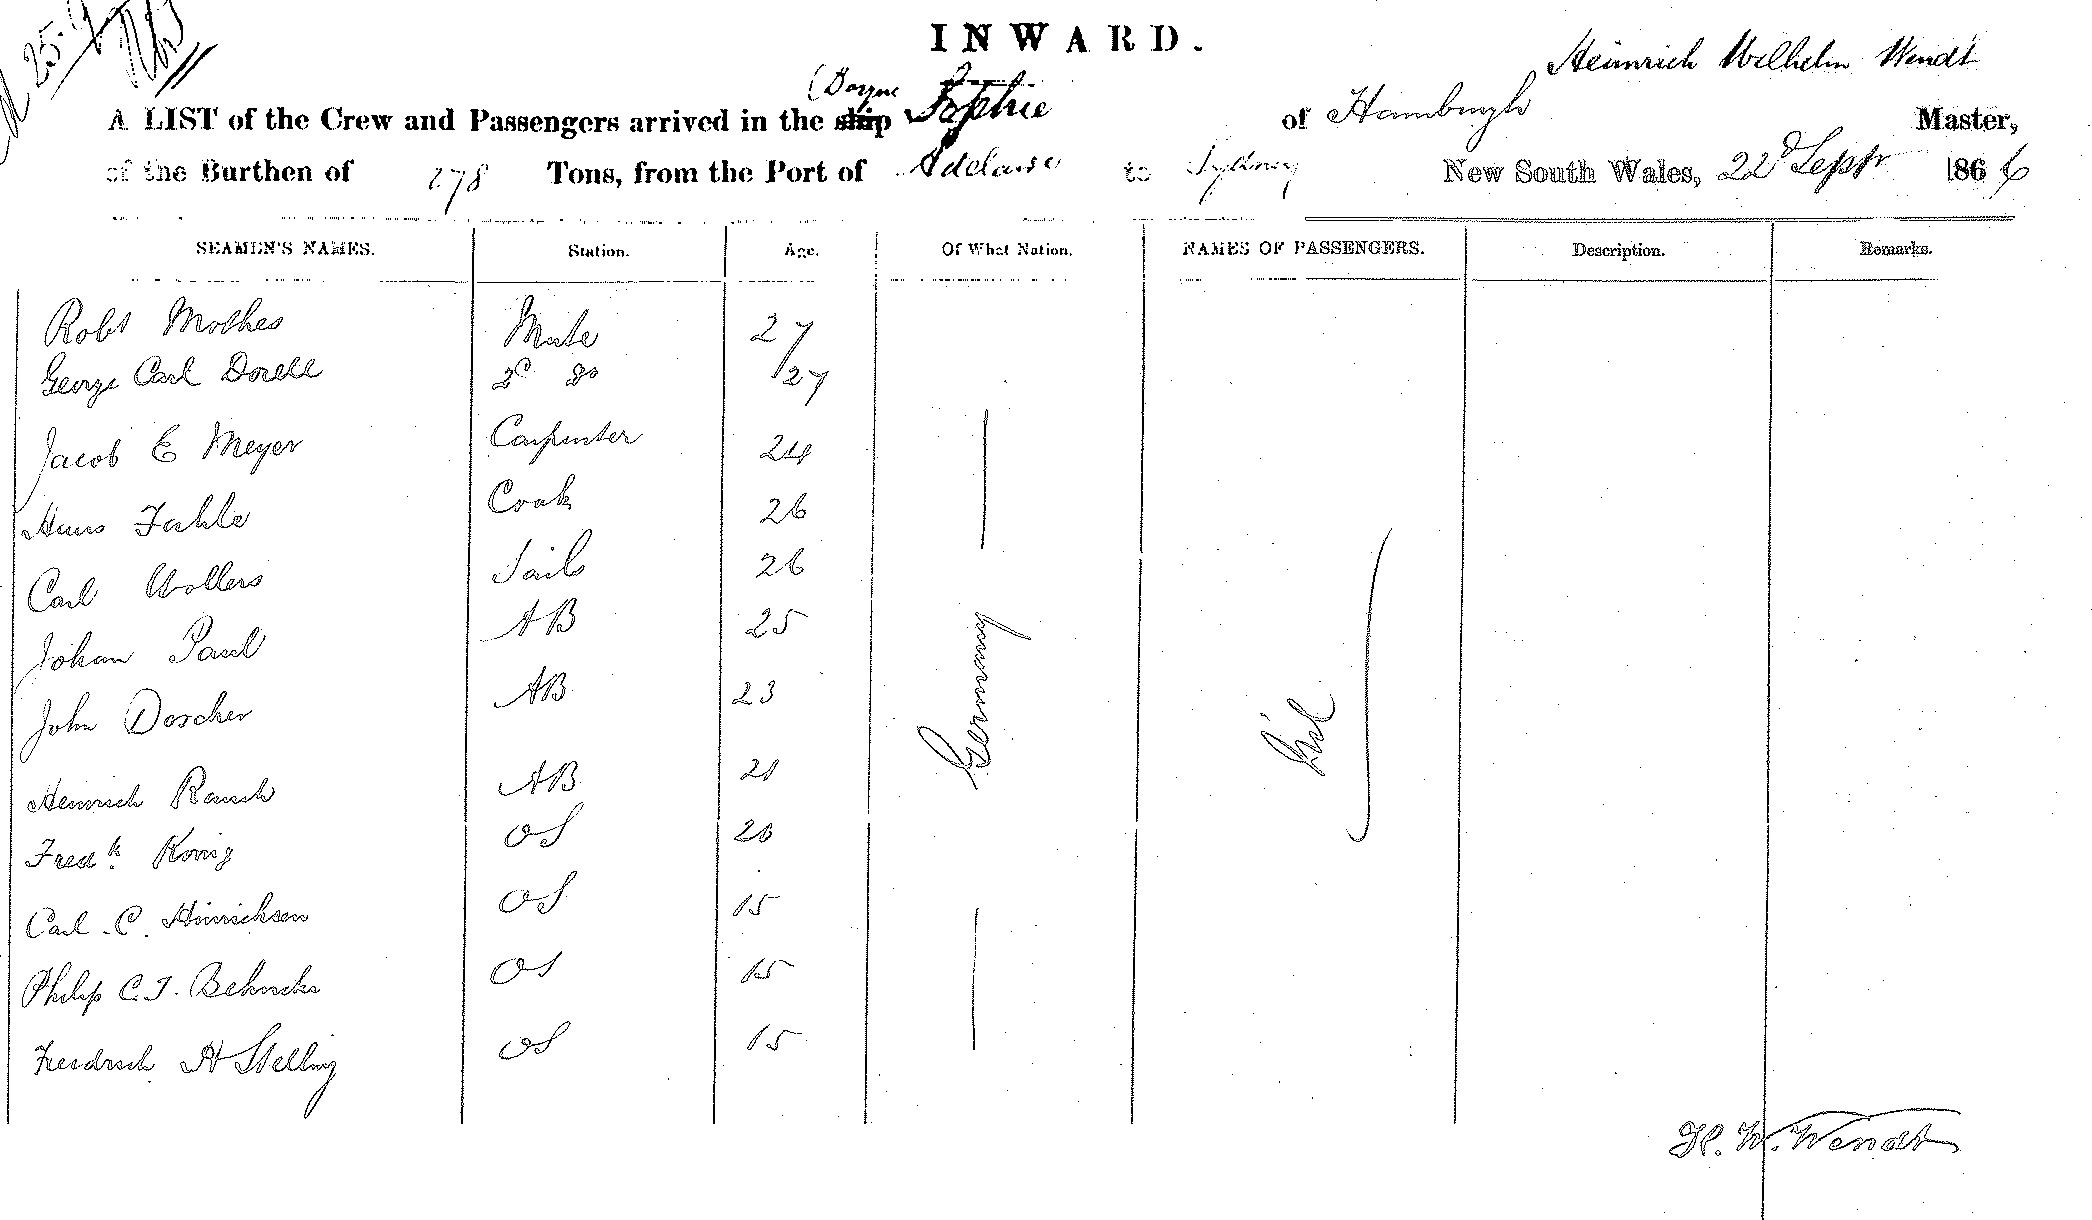 25.
INWARD.
Heinrich Wilhelm Wendt
A LIST of the Crew and Passengers arrived in the ship Sophie of Hamburgh Master,
of the Burthen of 278 Tons, from the Port of Adelaide to Sydney New South Wales, 22d Septr 1866
SEAMEN'S NAMES. Station. Age. Of What Nation. NAMES OF PASSENGERS. Description. Remarks.
Robt Mothes Mate 27
George Carl Dorell 2d do 27
Jacob E Meyer Carpenter 24
Hans Fahle Cook 26
Carl Wollers Sails 26
Johan Paul AB 25
John Doscher AB 23
Germany
Heinrich Rausch AB 21
Fredk Konig OS 20
Carl C. Hinrichsen OS 15
Philip C. J. Behncke OS 15
Friedrich H Stelling OS 15
H. W. Wendt